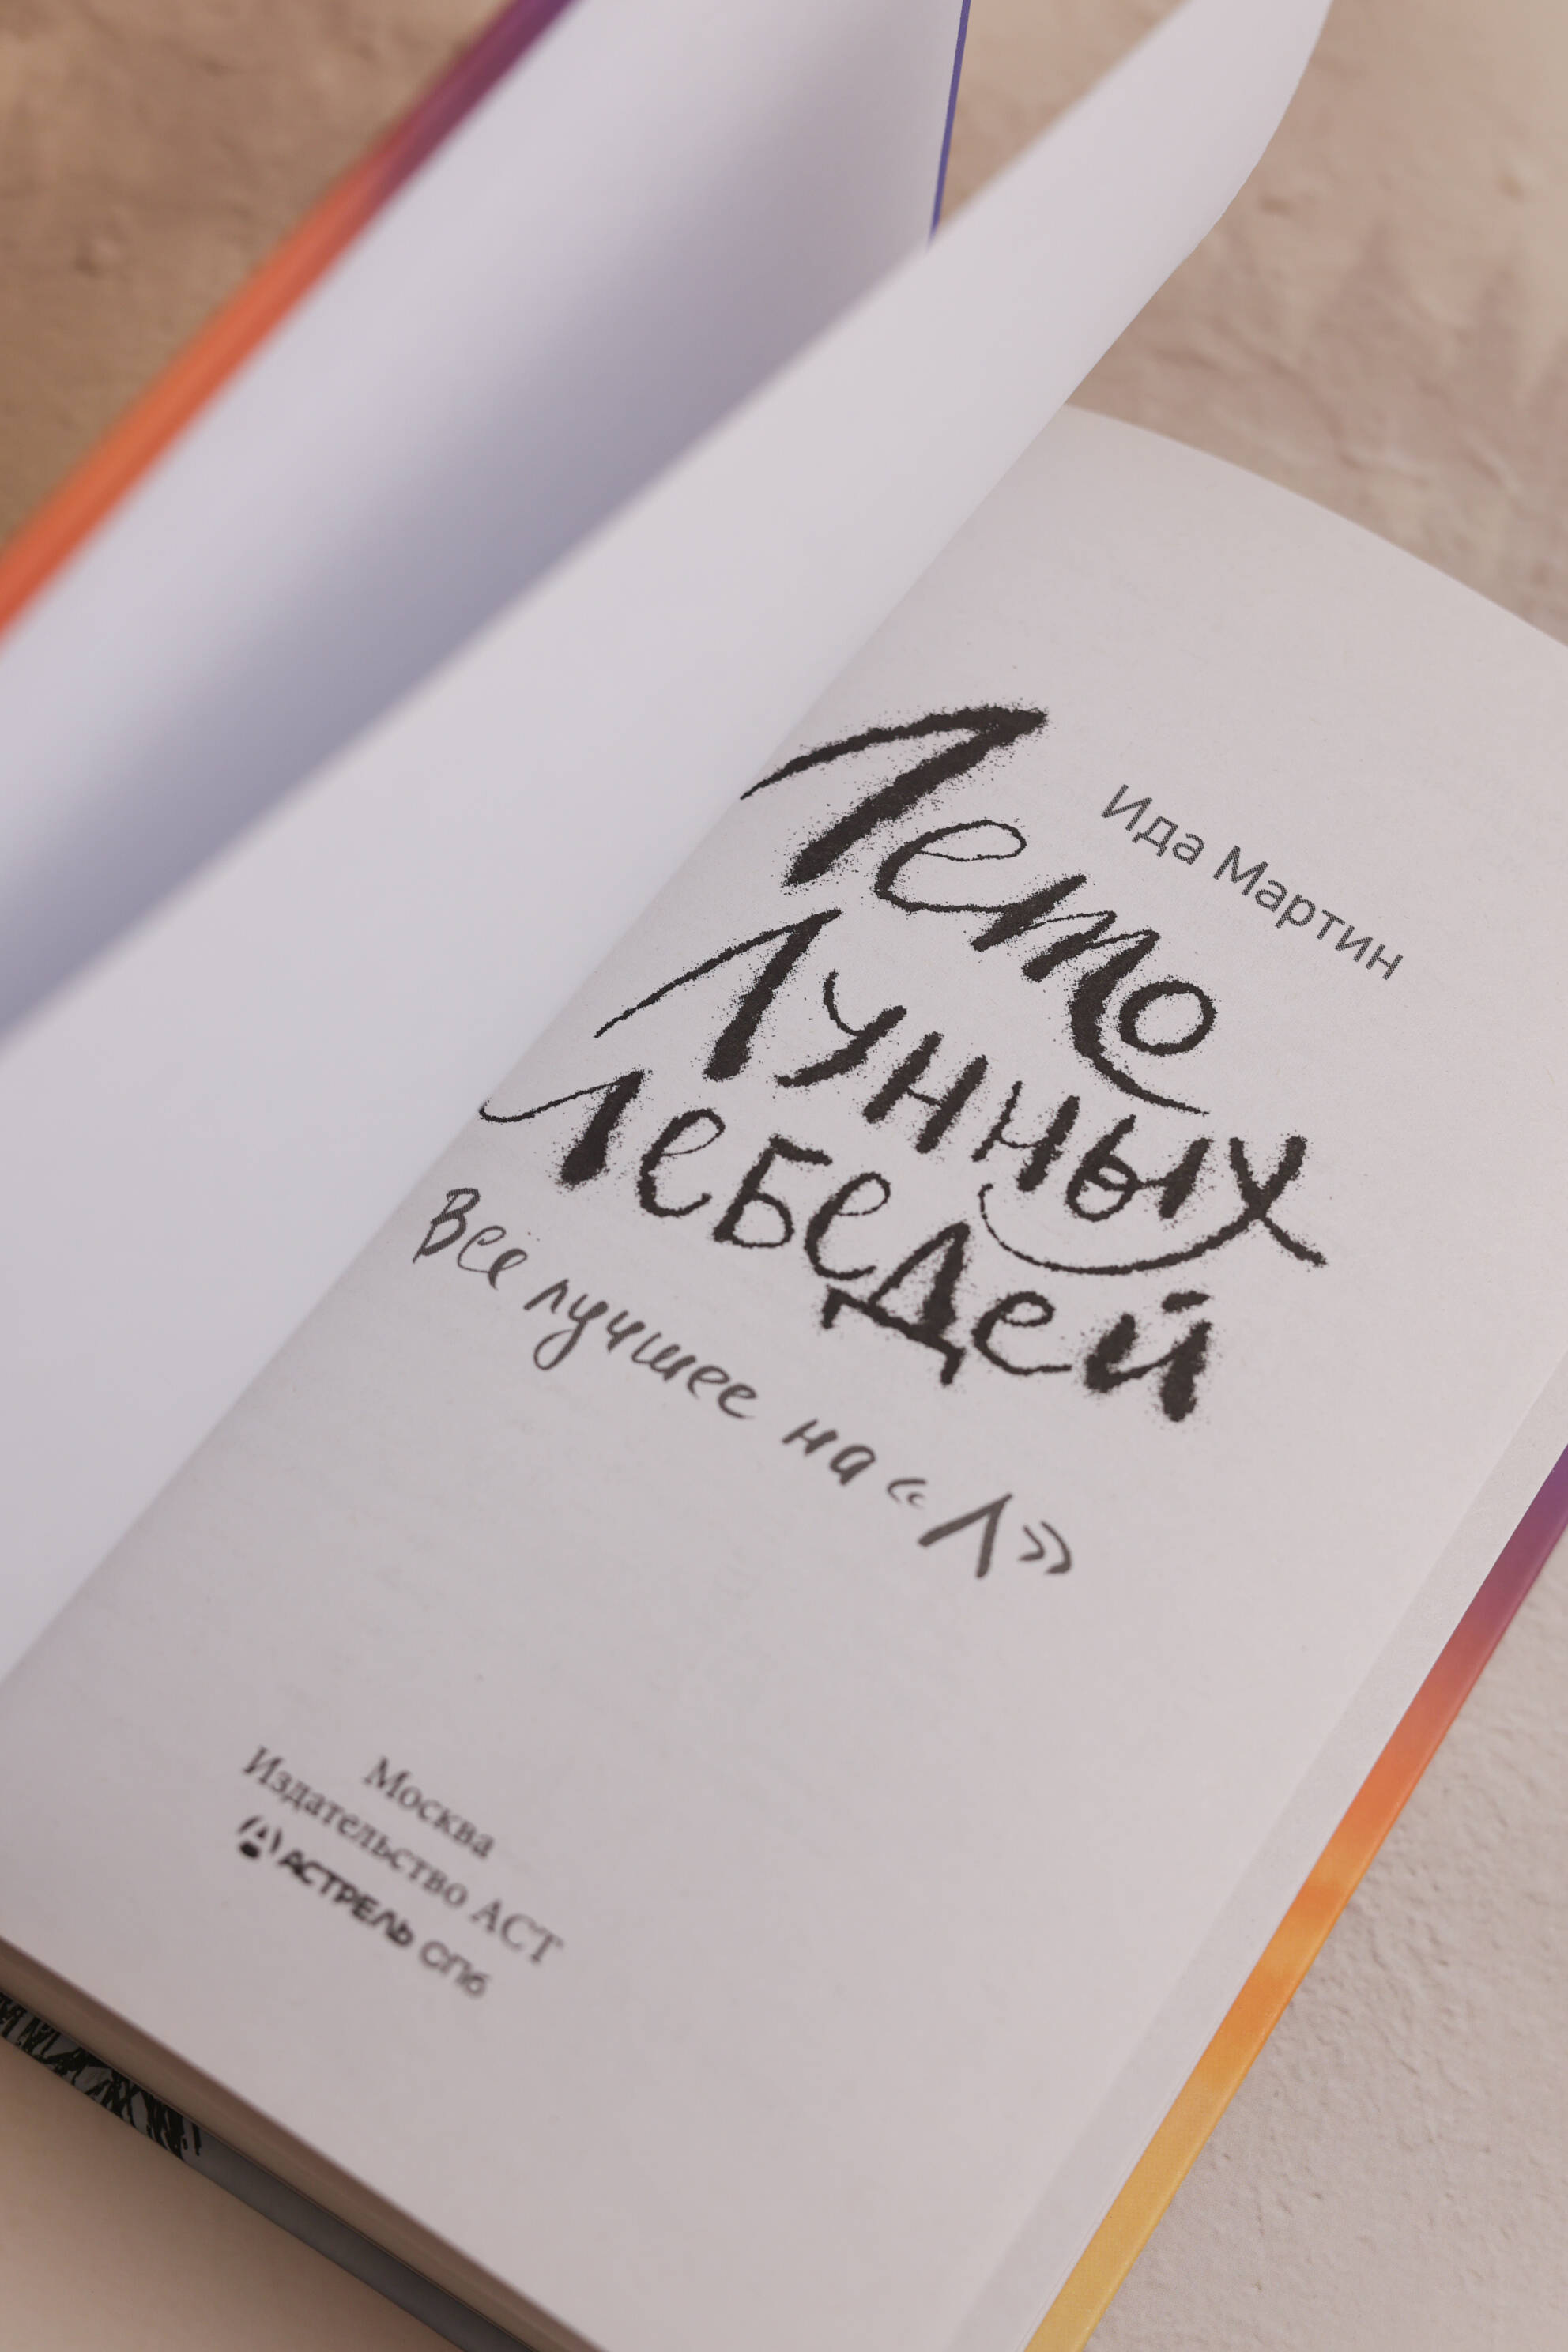 Ида Мартин
Лето
Лунных
Лебедей
Все лучшее на «Л»
Москва
Издательство АСТ
АСТРЕЛЬ СПб